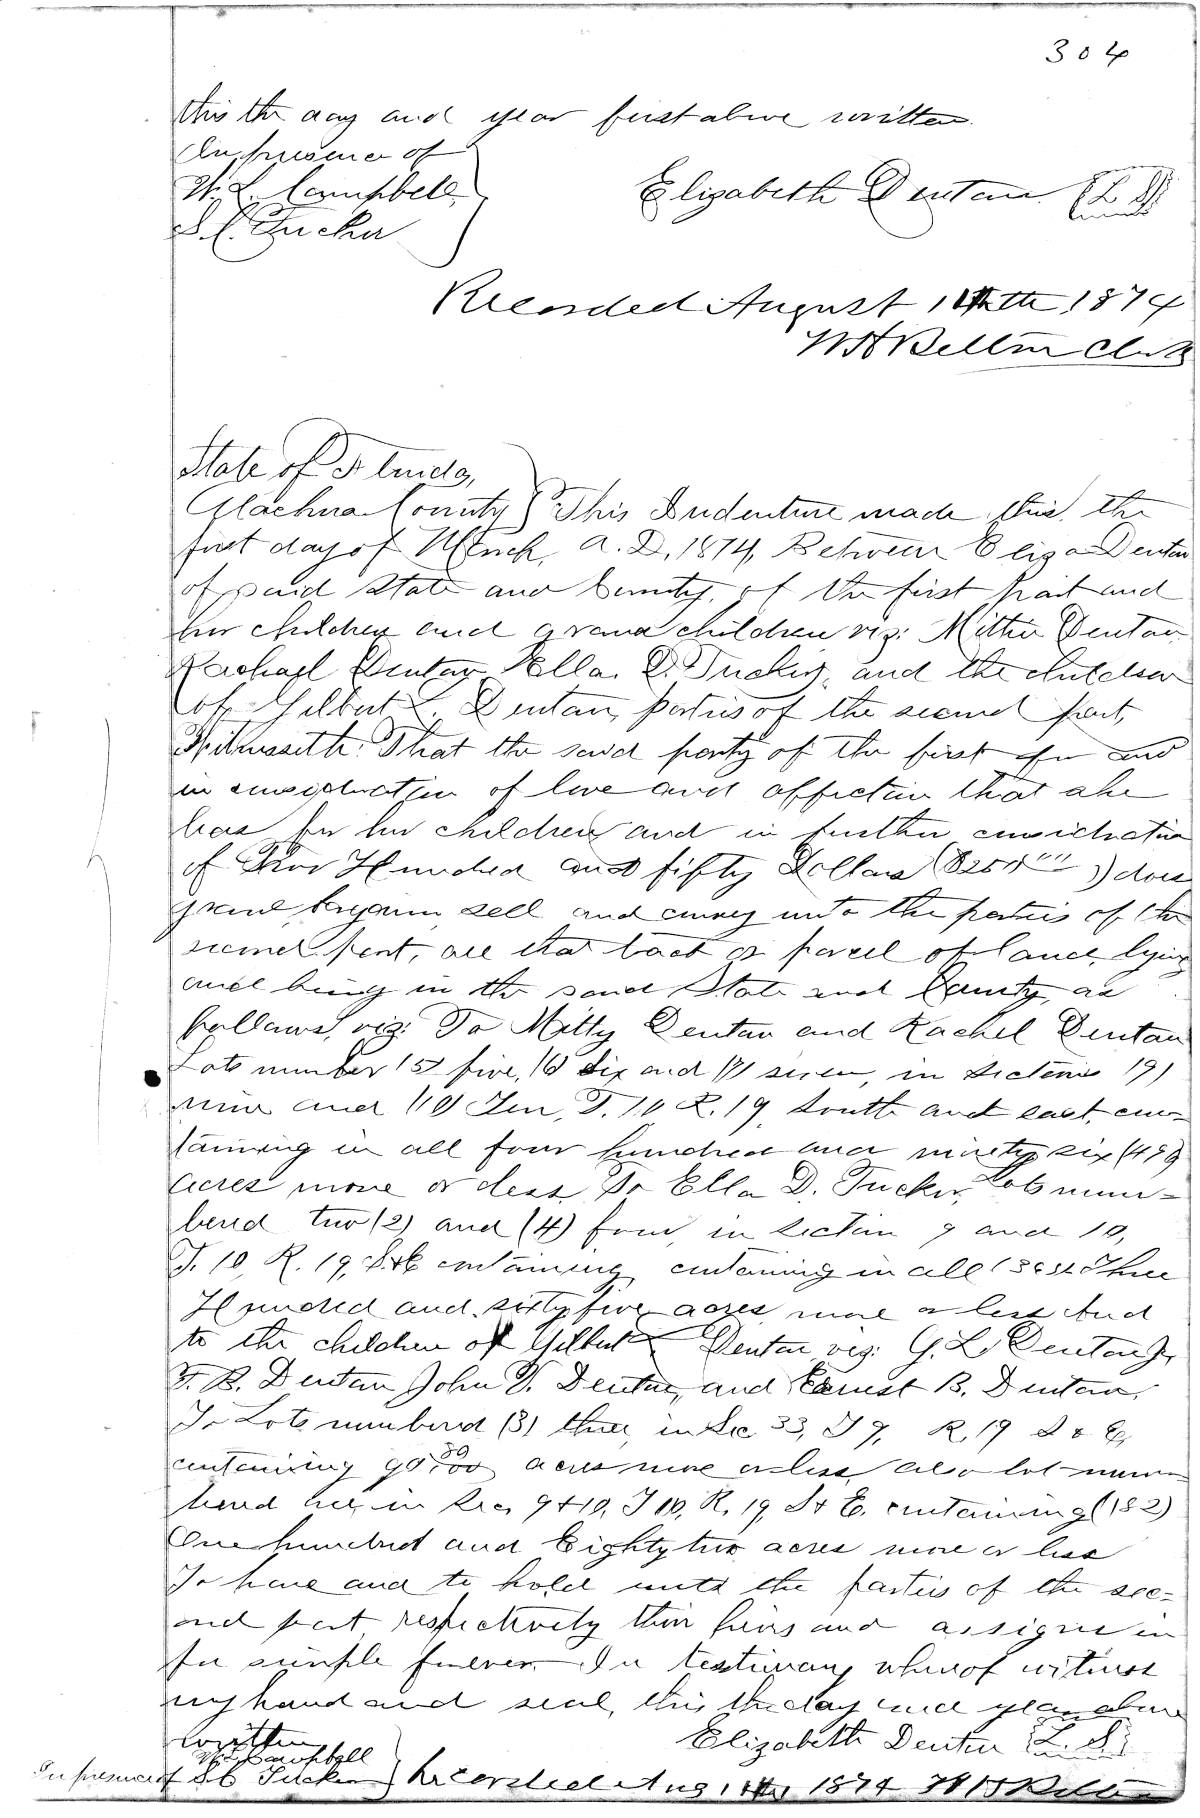 304
this the day and year first above written
In presence of
W. L. Campbell
S. C. Tucker
Elizabeth Dentan {L S}
Recorded August 1874
W H Belton Clerk
State of Florida,
Alachua County } This Indenture made this the
first day of March, A. D. 1874, Between Eliza Dentan
of said State and County, of the first part and
her children and grand children viz: Mittie Dentan
Rachael Dentan Ella. D. Tucker, and the children
of Gilbert L. Dentan, parties of the second part,
Witnesseth: That the said party of the first for and
in consideration of love and affection that she
has for her children and in further consideration
of Two Hundred and fifty Dollars ($250.00) does
grant, bargain, sell, and convey unto the parties of the
second part, all that tract or parcel of land, lying
and being in the said State and County, as
follows, viz: To Mitty Dentan and Rachel Dentan
Lots number (5) five, (6) six and (7) seven, in sections (9)
nine and (10) Ten, T. 10 R. 19, South and east, con-
taining in all four hundred and ninety six (496)
acres more or less, To Ella D. Tucker, Lots num-
bered two (2) and (4) four, in section 9 and 10,
T. 10, R. 19, S. & E containing, containing in all (365) Three
Hundred and sixty five acres more or less And
to the children of Gilbert L Dentan, viz: G. L. Dentan Jr,
F. B. Dentan John Dentan, and Ernest B. Dentan,
To Lots numbered (3) three, in Sec 33, T 9, R. 19 S & E,
containing 90 acres more or less, also lot num-
bered in Sec. 9 & 10, T 10, R. 19, S & E. containing (182)
One hundred and Eighty two acres more or less
To have and to hold unto the parties of the sec-
ond part respectively their heirs and assigns in
fee simple forever. In testimony whereof witness
my hand and seal, this the day and year above
written
Elizabeth Dentan {L. S.}
W L Campbell
In presence of S C Tucker } Recorded Aug 1874 W H Belton